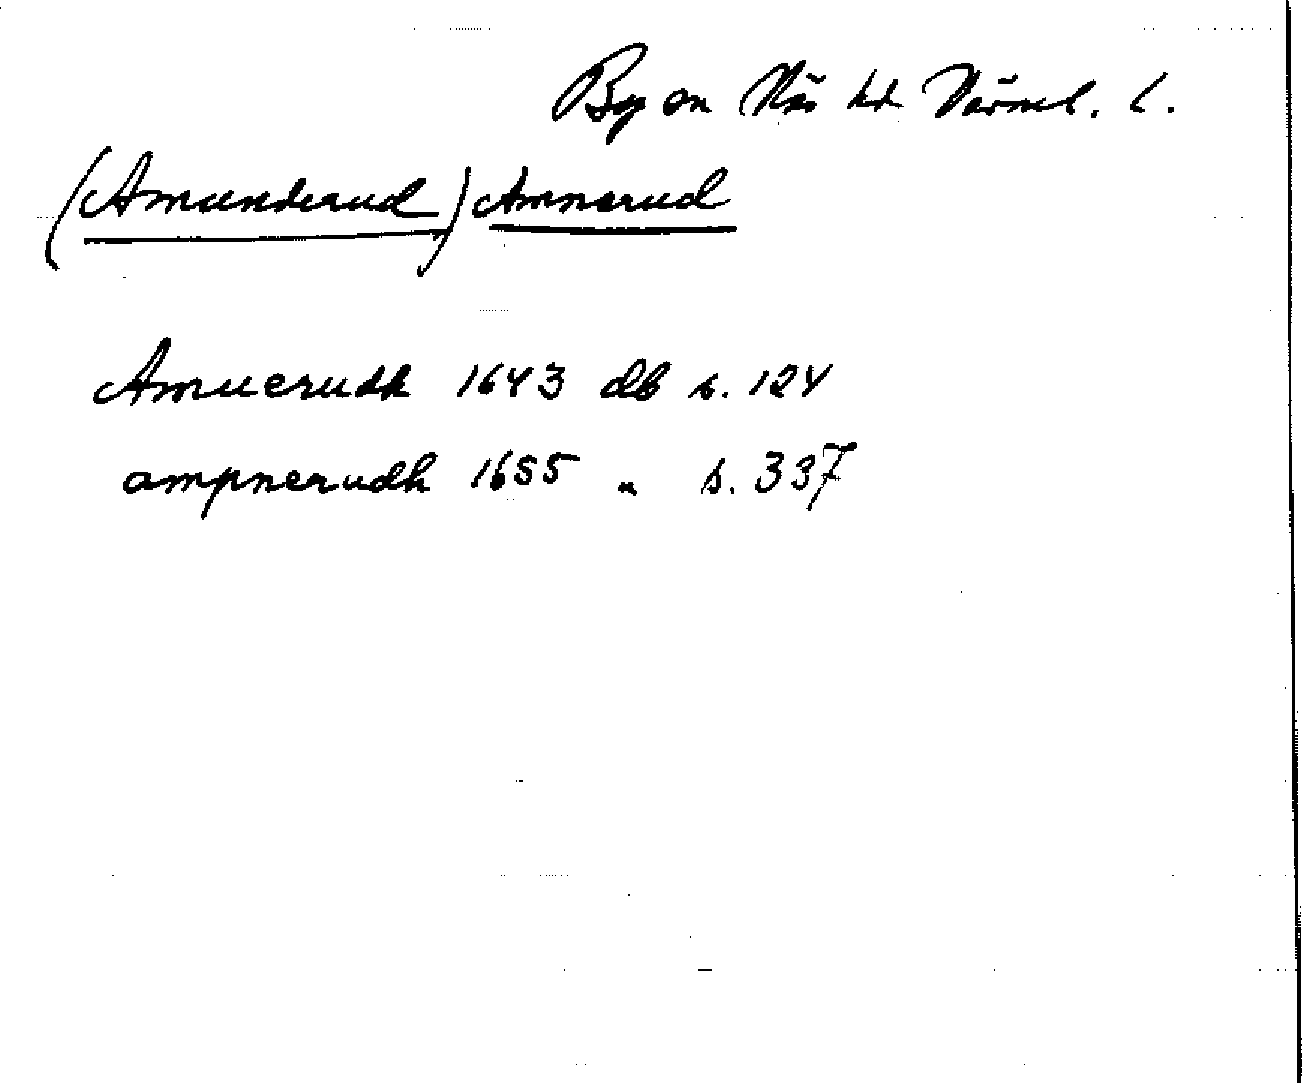 By sn Näs hd Värml. l.
(Amunderud) Amnerud
Amuerudh 1643 db s. 124
ampnerudh 1655 " s. 337